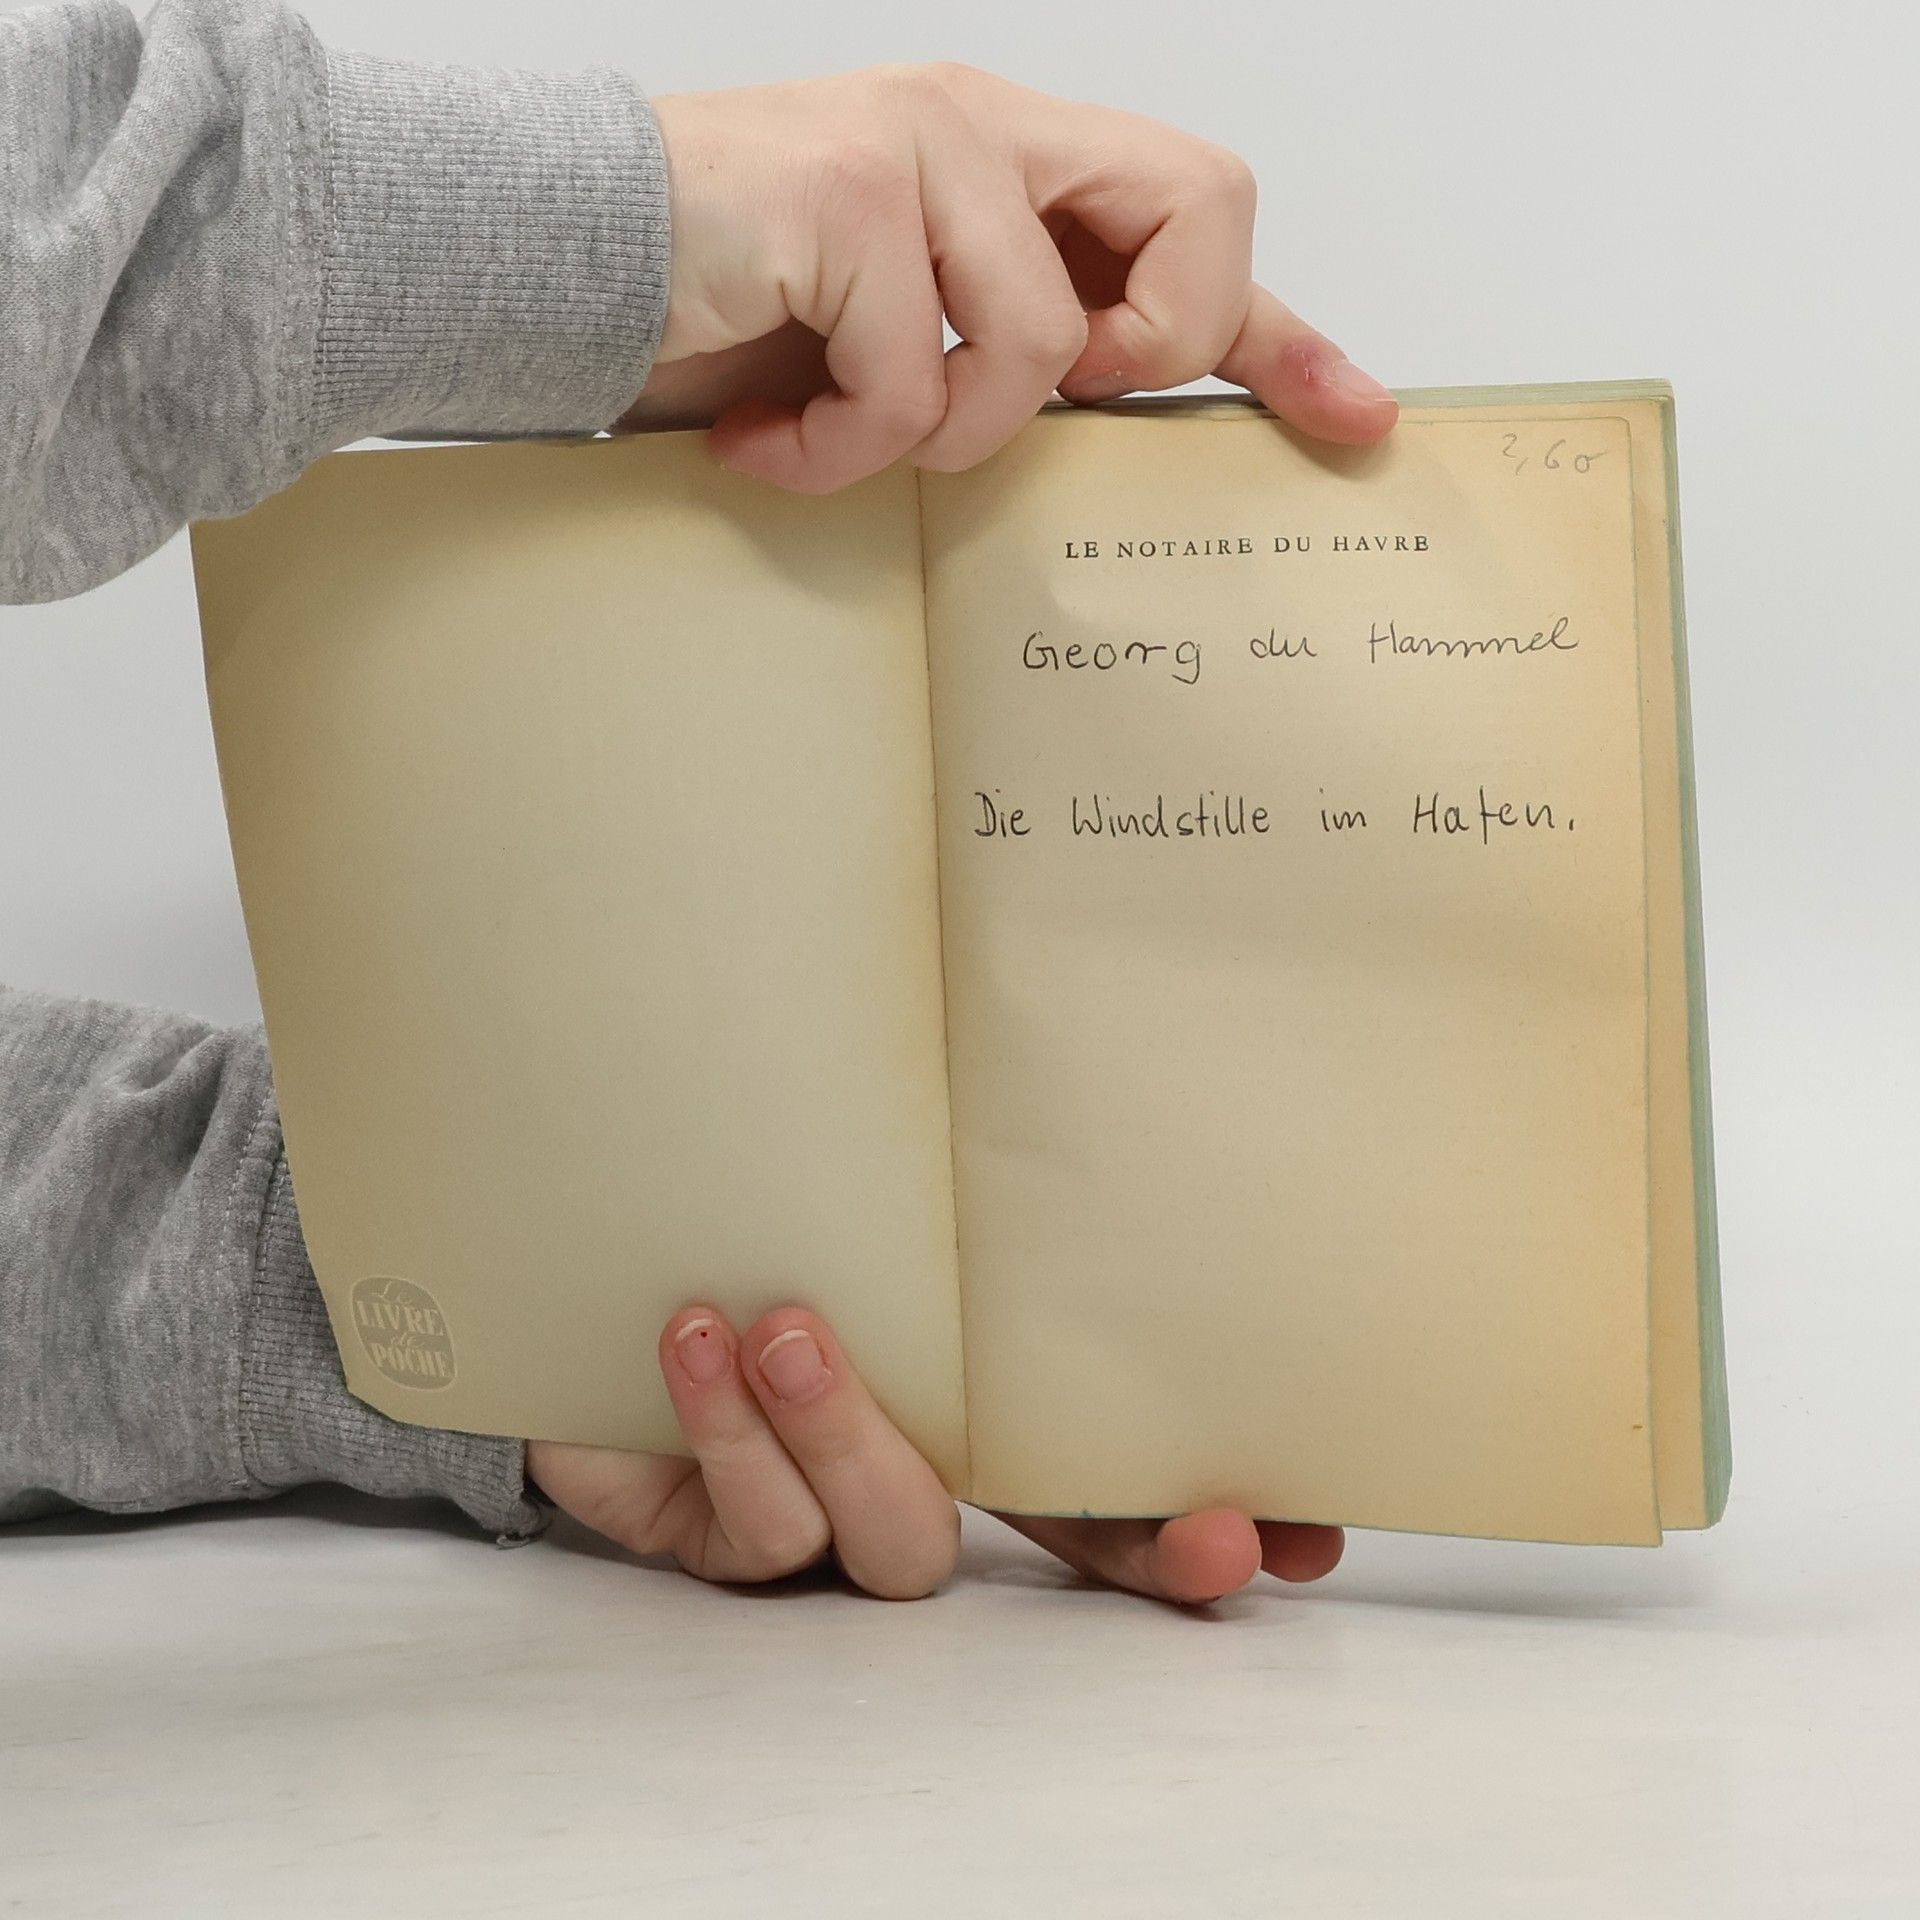 Le
LIVRE
de
POCHE
2,60
LE NOTAIRE DU HAVRE
Georg du Hammel
Die Windstille im Hafen.